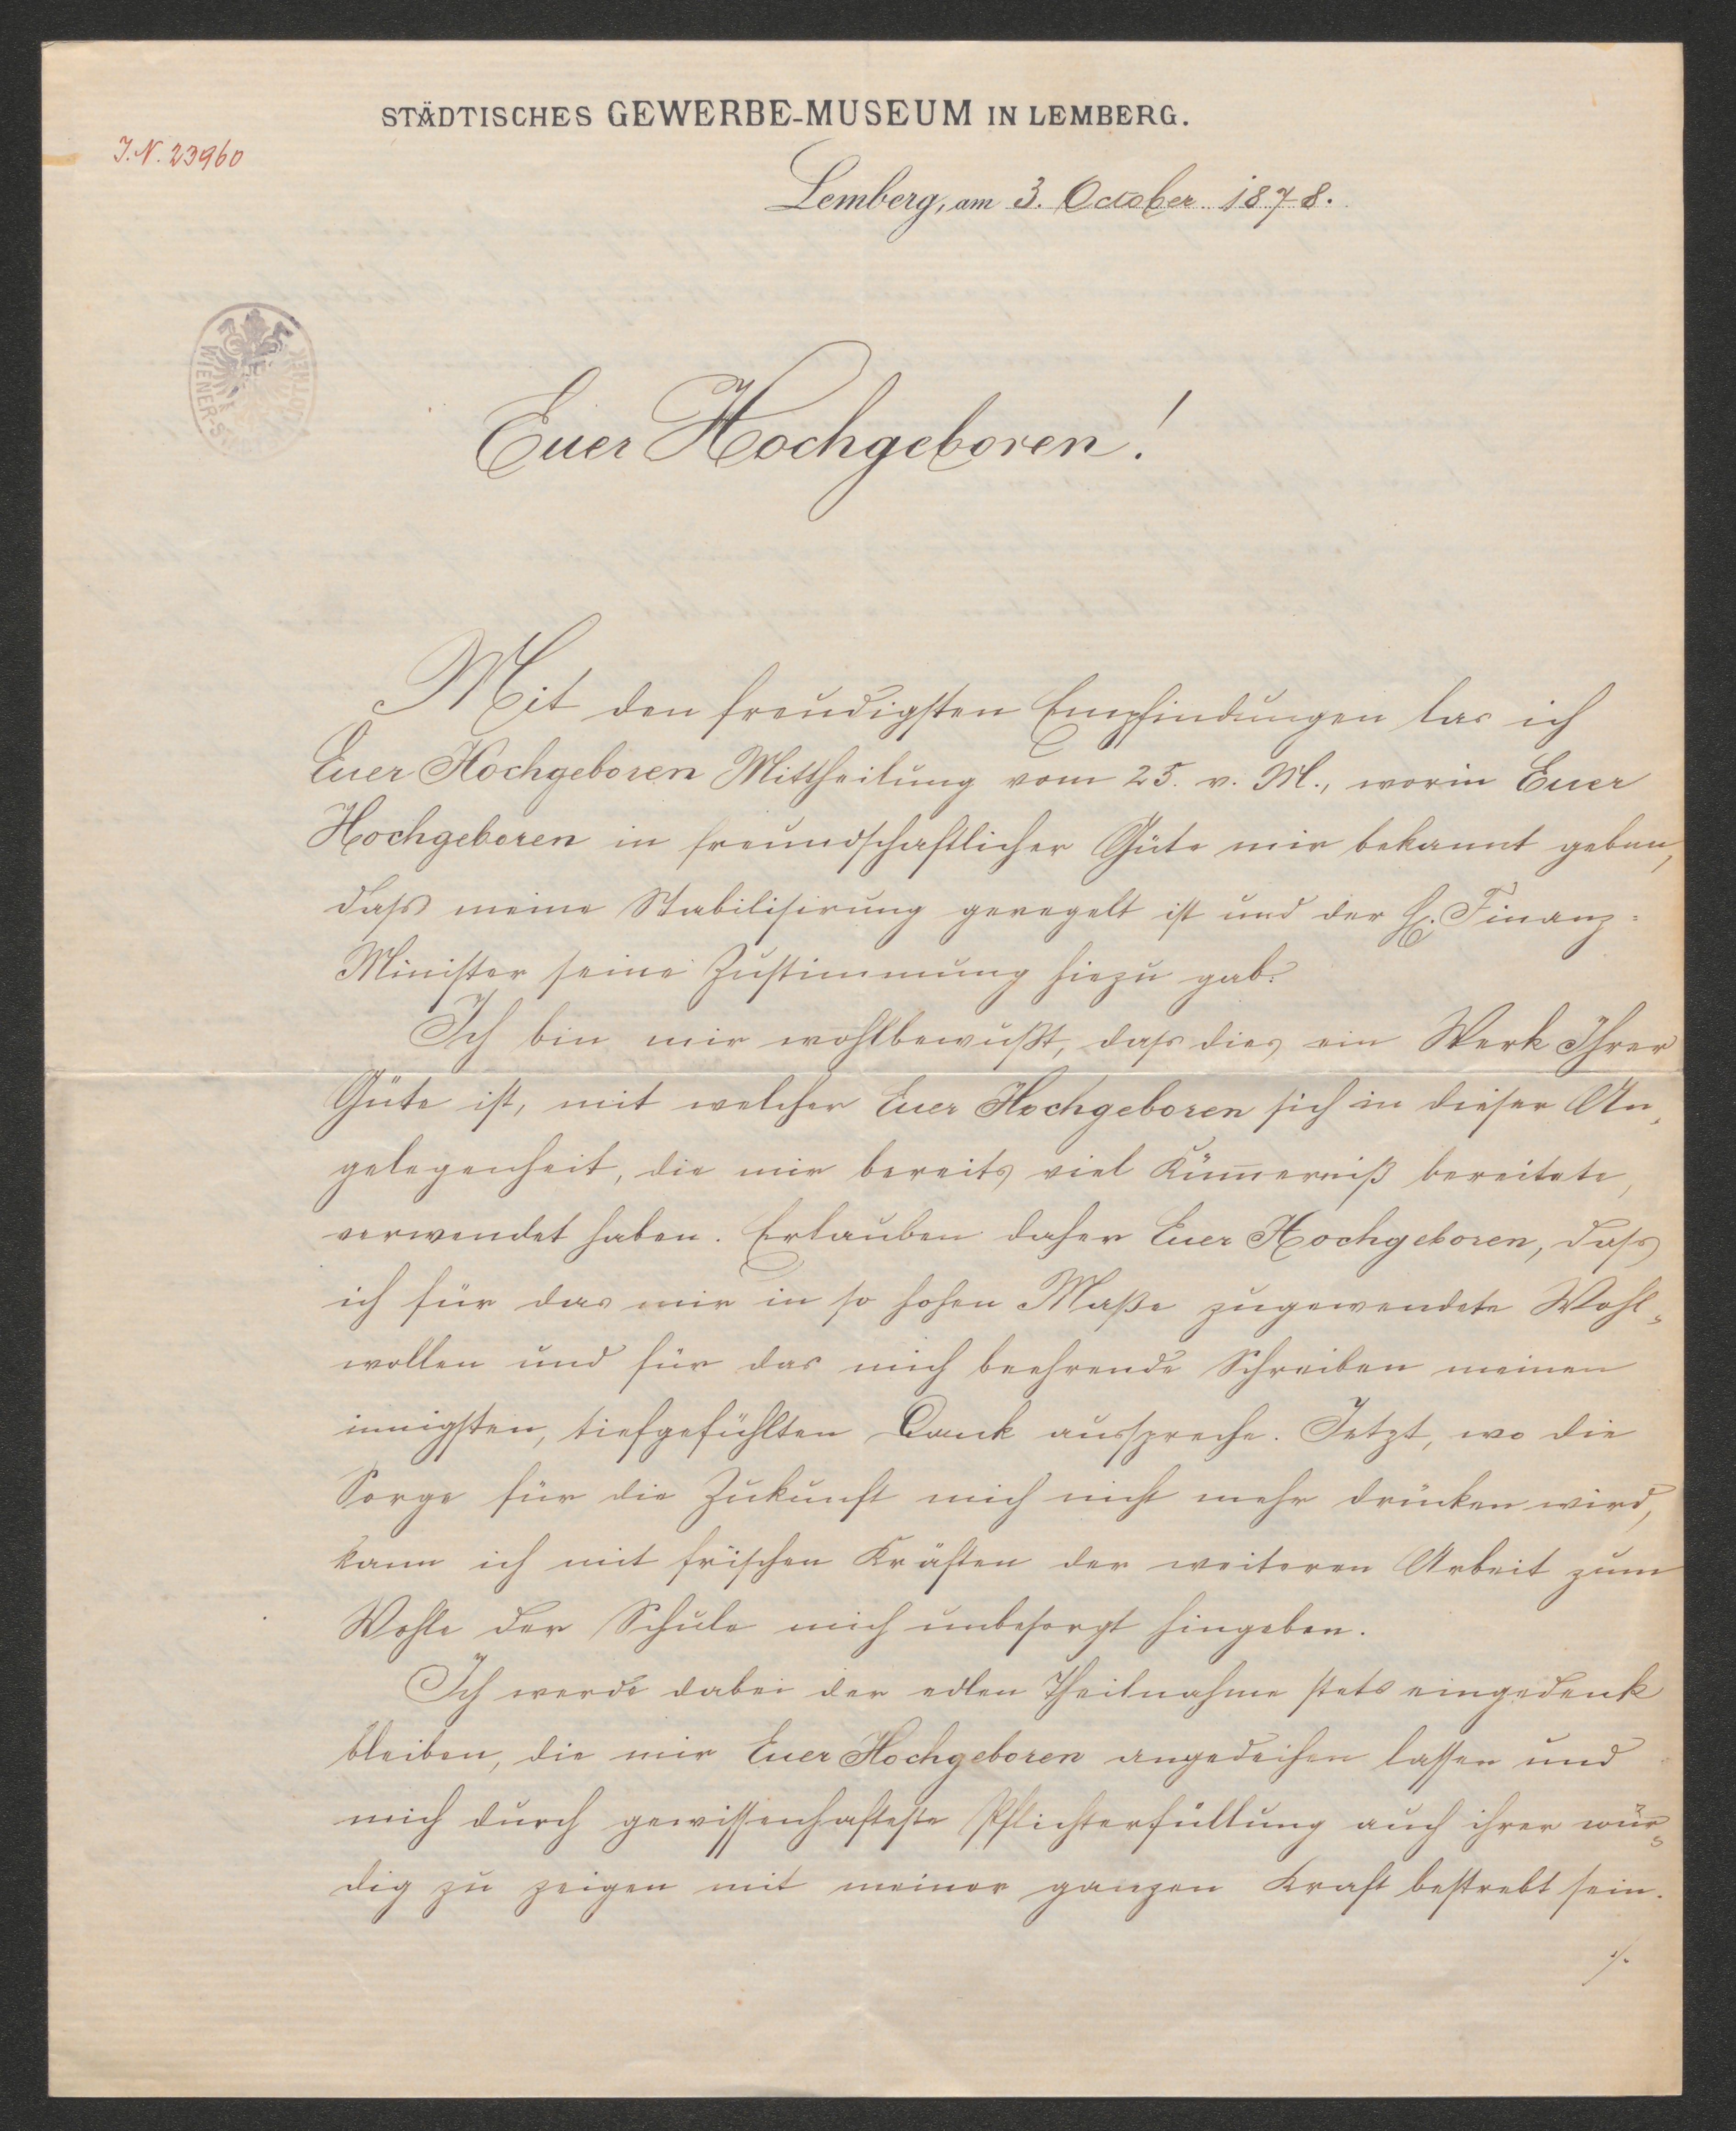 STÄDTISCHES GEWERBE-MUSEUM IN LEMBERG.
I.N. 23960
Lemberg, am 3. October 1878.
WIENER-S
Euer Hochgeboren!
Mit den freudigsten Empfindungen las ich
Euer Hochgeboren Mittheilung vom 25. v. M., worin Euer
Hochgeboren in freundschaftlicher Güte mir bekannt geben,
dass meine Stabilisirung geregelt ist und der H. Finanz=
Minister seine Zustimmung hiezu gab.
Ich bin mir wohlbewußt, dass dies ein Werk Ihrer
Güte ist, mit welcher Euer Hochgeboren sich in dieser An„
gelegenheit, die mir bereits viel Kümerniß bereitete,
verwendet haben. Erlauben daher Euer Hochgeboren, dass
ich für das mir in so hohen Maße zugewendete Wohl„
wollen und für das mich beehrende Schreiben meinen
innigsten, tiefgefühlten Dank ausspreche. Jetzt, wo die
Sorge für die Zukunft mich nicht mehr drücken wird,
kann ich mit frischen Kräften der weiteren Arbeit zum
Wohle der Schule mich unbesorgt hingeben.
Ich werde dabei der edlen Theilnahme stets eingedenk
bleiben, die mir Euer Hochgeboren angedeihen lassen und
mich durch gewissenhafteste Pflichterfüllung auch ihrer wür„
dig zu zeigen mit meiner ganzen Kraft bestrebt sein.
./.